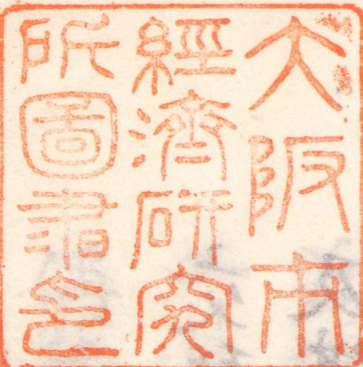 大阪市
經濟研究
所圖書印